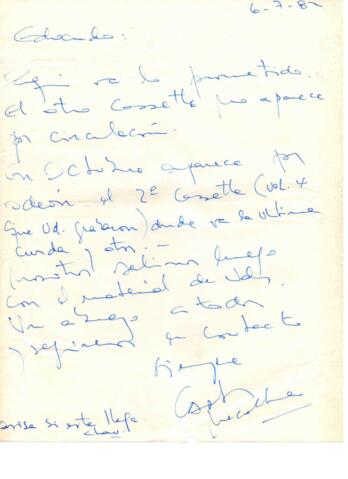 6-7-82
Eduardo:
Aquí va lo prometido.
El otro cassette no aparece
por circulación.
En Octubre aparece por
odeón el 2º cassette (vol. 4
que Ud. grabaron) donde va la ultima
curda y otros.-
nosotros salimos luego
con el material de Uds.
Un abrazo a todos
y seguimos en contacto
siempre
avisa si esta llega